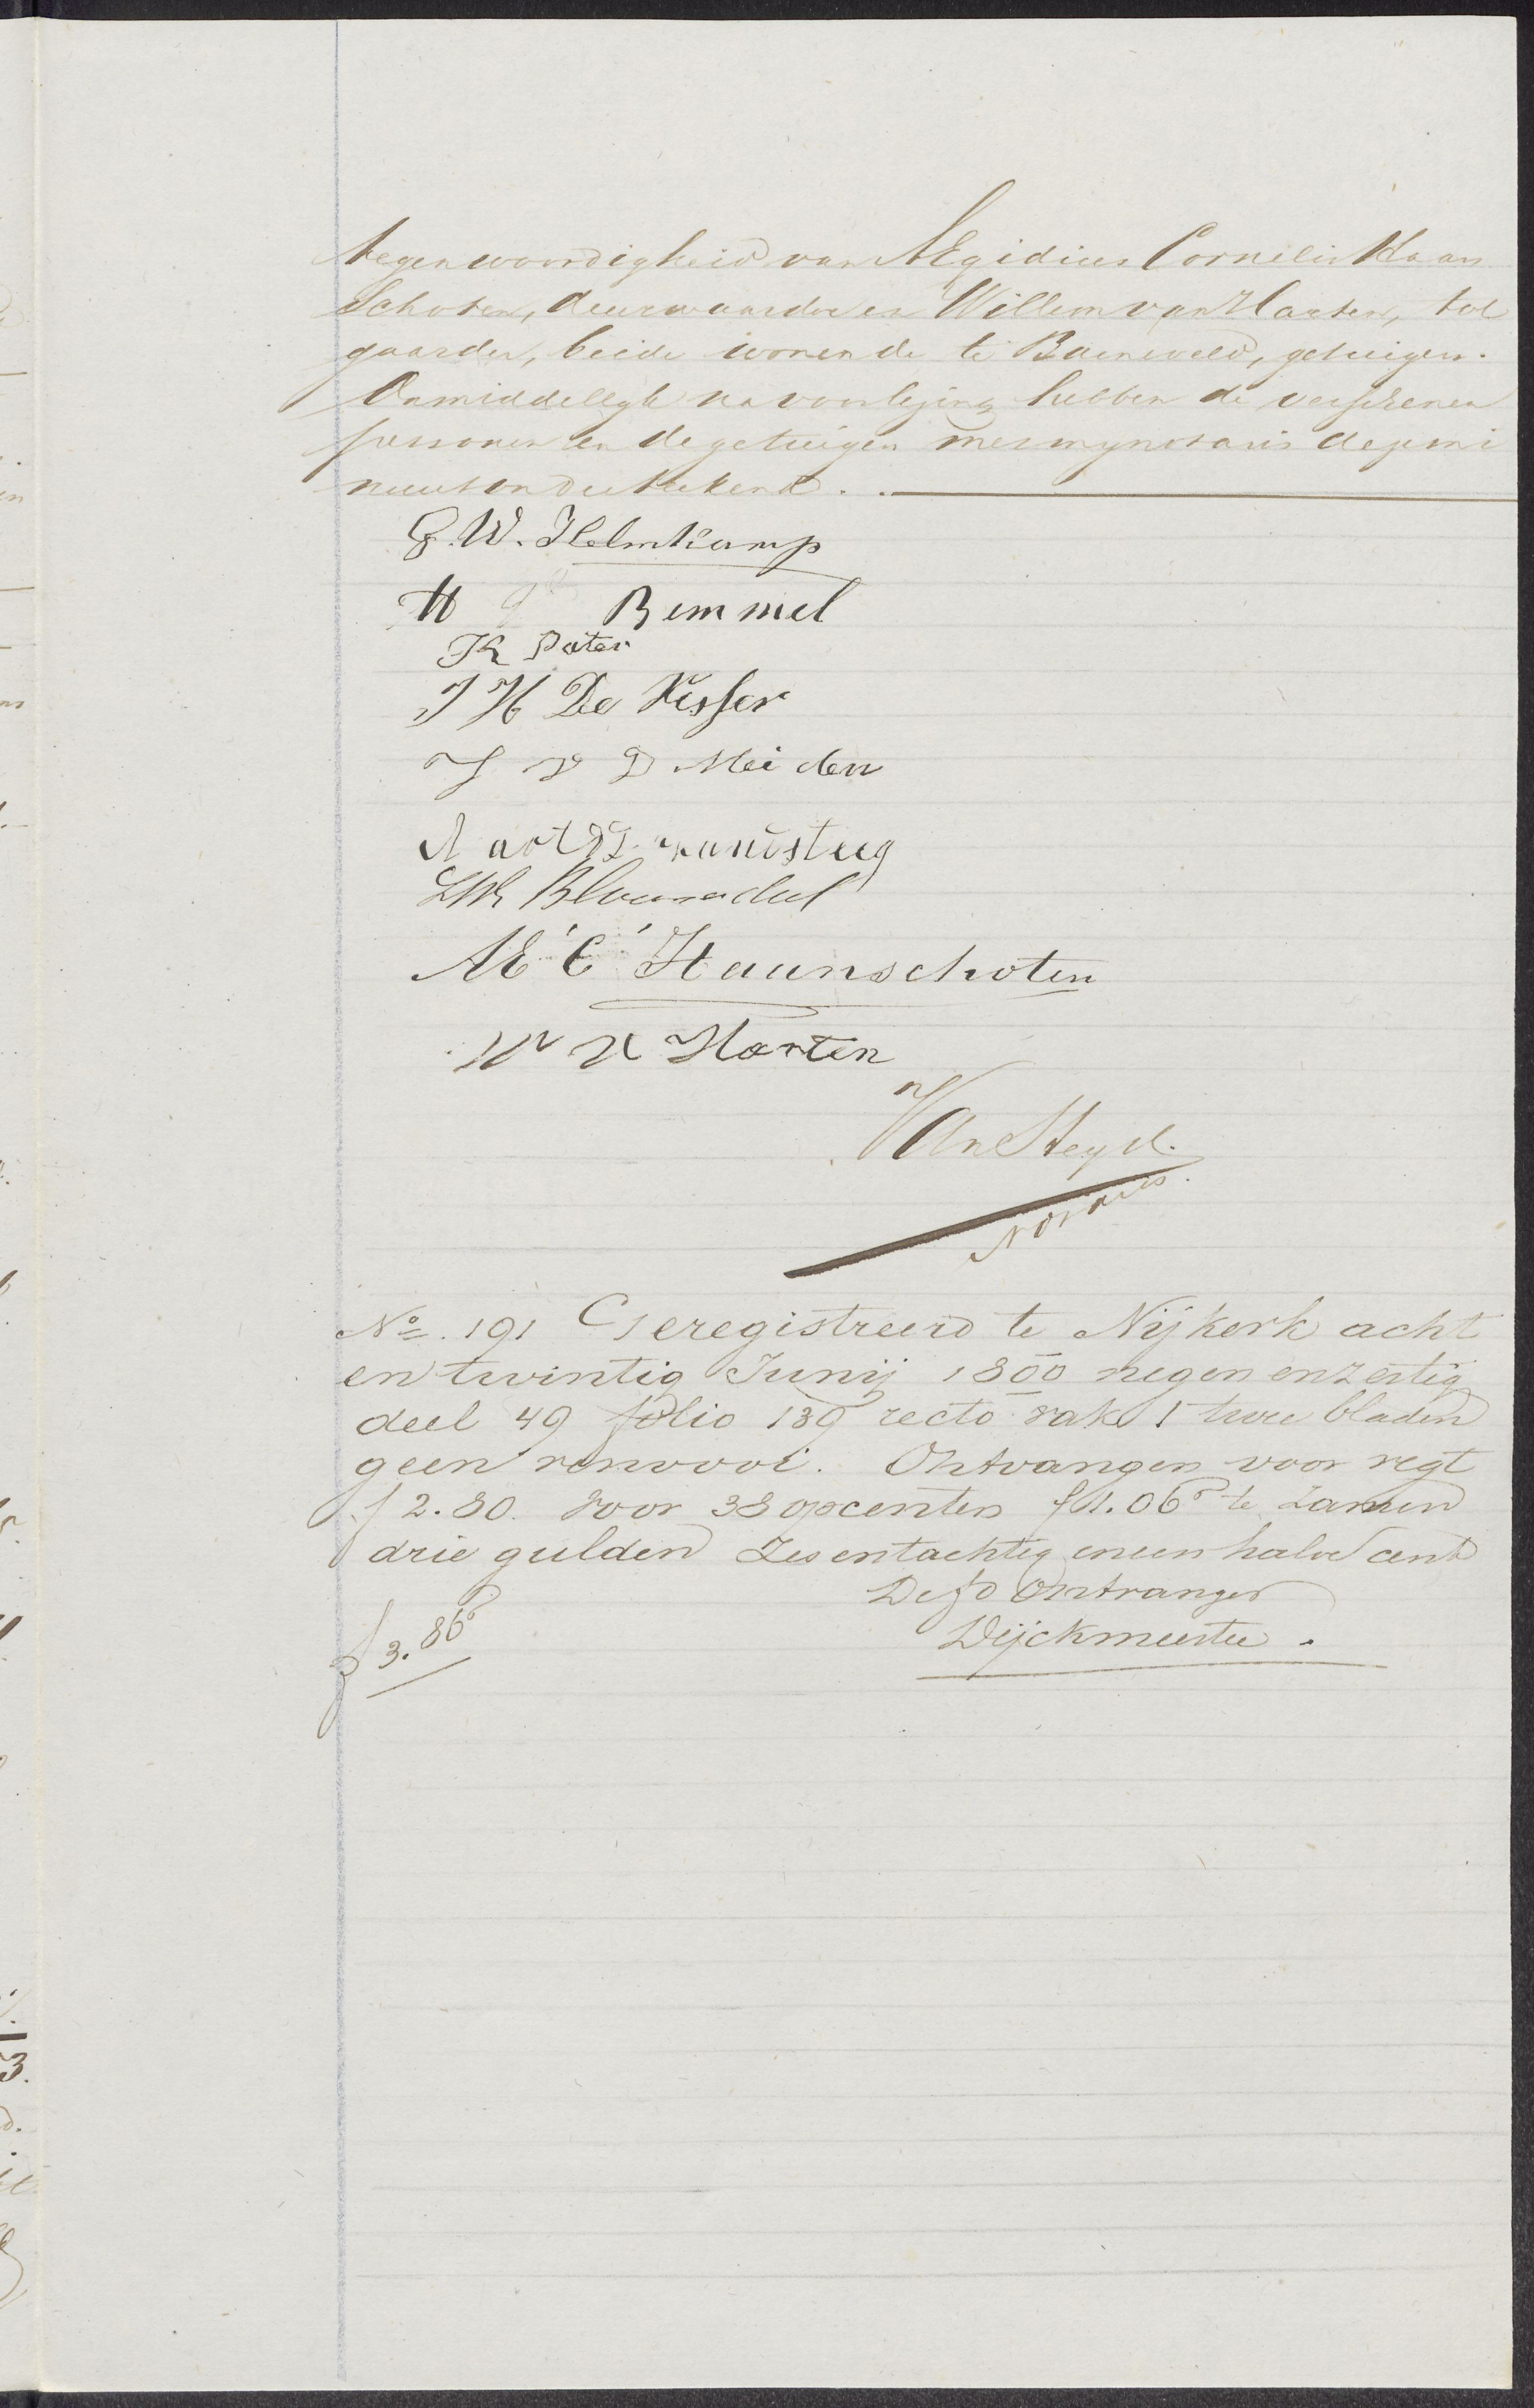 tegenwoordigheid van AEgidius Cornelis Haan
Schoten, deurwaarder en Willem van Harten, tol
gaarder, beide wonende te Barneveld, getuigen.
Onmiddellyk na voorlezing hebben de verschenen
personen en de getuigen met my notaris deze mi
nuut onderteekend. .
G. W. Helmkamp
H Bemmel
K Pater
J H De Visser
J V D Meiden
Aart van Ysteeg
Bloemendal
AE C Haanschoten
W V Harten
Van Steyd.
Notaris.
No. 191 Geregistreerd te Nijkerk acht
en twintig Junij 1800 negen en zestig
deel 49 folio 139 recto vak 1 twee bladen
geen renvooi. Ontvangen voor regt
f 2.80. voor 38 opcenten f 1.06⁵ te zamen
drie gulden zes en tachtig en een halve cent
De fd Ontvanger
Dijckmeester.
f 3.86⁵